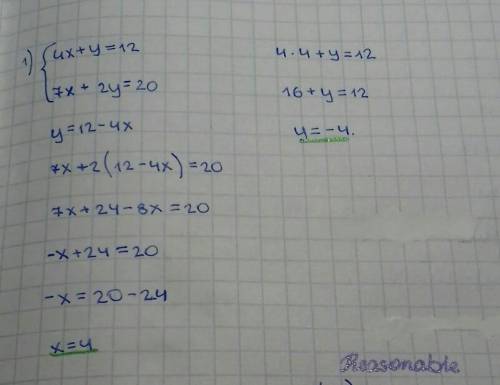 1) { 4x+y=12
7x+2y=20
y=12-4x
7x+2(12-4x)=20
7x+24-8x=20
-x+24=20
-x=20-24
x=4
4·4+y=12
16+y=12
y=-4.
Reasonable